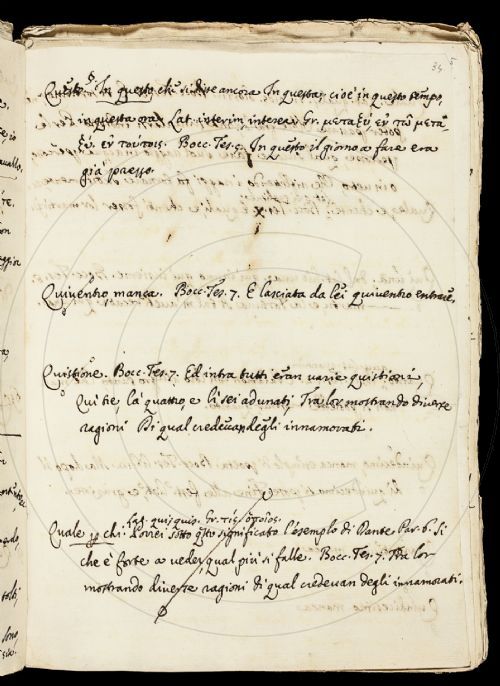 34 5
Questo. §. In questo che si dice ancora In questa; cioè in questo tempo,
in questa ora. Lat. interim, interea. Gr. μεταξὺ εν τω μετα
ξὺ. εν τουτοις. Bocc. Tes. 5. In questo il giorno a fare era
già presso.
Quiventro, manca. Bocc. Tes. 7. E lasciata da lei quiventro entrare.
Quistione. Bocc. Tes. 7. Ed intra tutti eran varie quistioni,
Qui tre, là quattro e lì sei adunati, Tra lor mostrando diverse
ragioni Di qual credevan degli innamorati.
Lat. quisquis. Gr. τίς, ὁποῖος.
Quale per chi. Porrei sotto questo significato l'esemplo di Dante Par. 6. Sì
che è forte a veder, qual più si falle. Bocc. Tes. 7. Tra lor
mostrando diverse ragioni di qual credevan degli innamorati.